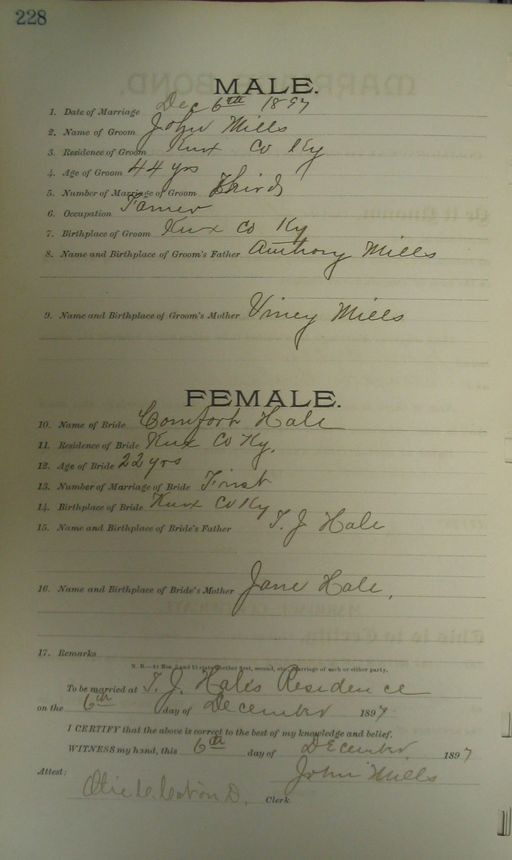 228
MALE.
1. Date of Marriage Dec 6th 1897
2. Name of Groom John Mills
3. Residence of Groom Knox Co Ky
4. Age of Groom 44 yrs
5. Number of Marriage of Groom Third
6. Occupation Farmer
7. Birthplace of Groom Knox Co Ky
8. Name and Birthplace of Groom's Father Anthony Mills
9. Name and Birthplace of Groom's Mother Viney Mills
FEMALE.
10. Name of Bride Comfort Hale
11. Residence of Bride Knox Co Ky.
12. Age of Bride 22 yrs
13. Number of Marriage of Bride First
14. Birthplace of Bride Knox Co Ky
15. Name and Birthplace of Bride's Father T. J Hale
16. Name and Birthplace of Bride's Mother Jane Hale,
17. Remarks
N. B.—At Nos. 5 and 13 state whether first, second, etc., marriage of each or either party.
To be married at T. J. Hales Residence
on the 6th day of December 1897
I CERTIFY that the above is correct to the best of my knowledge and belief.
WITNESS my hand, this 6th day of December, 1897
John Mills
Attest:
D. Clerk